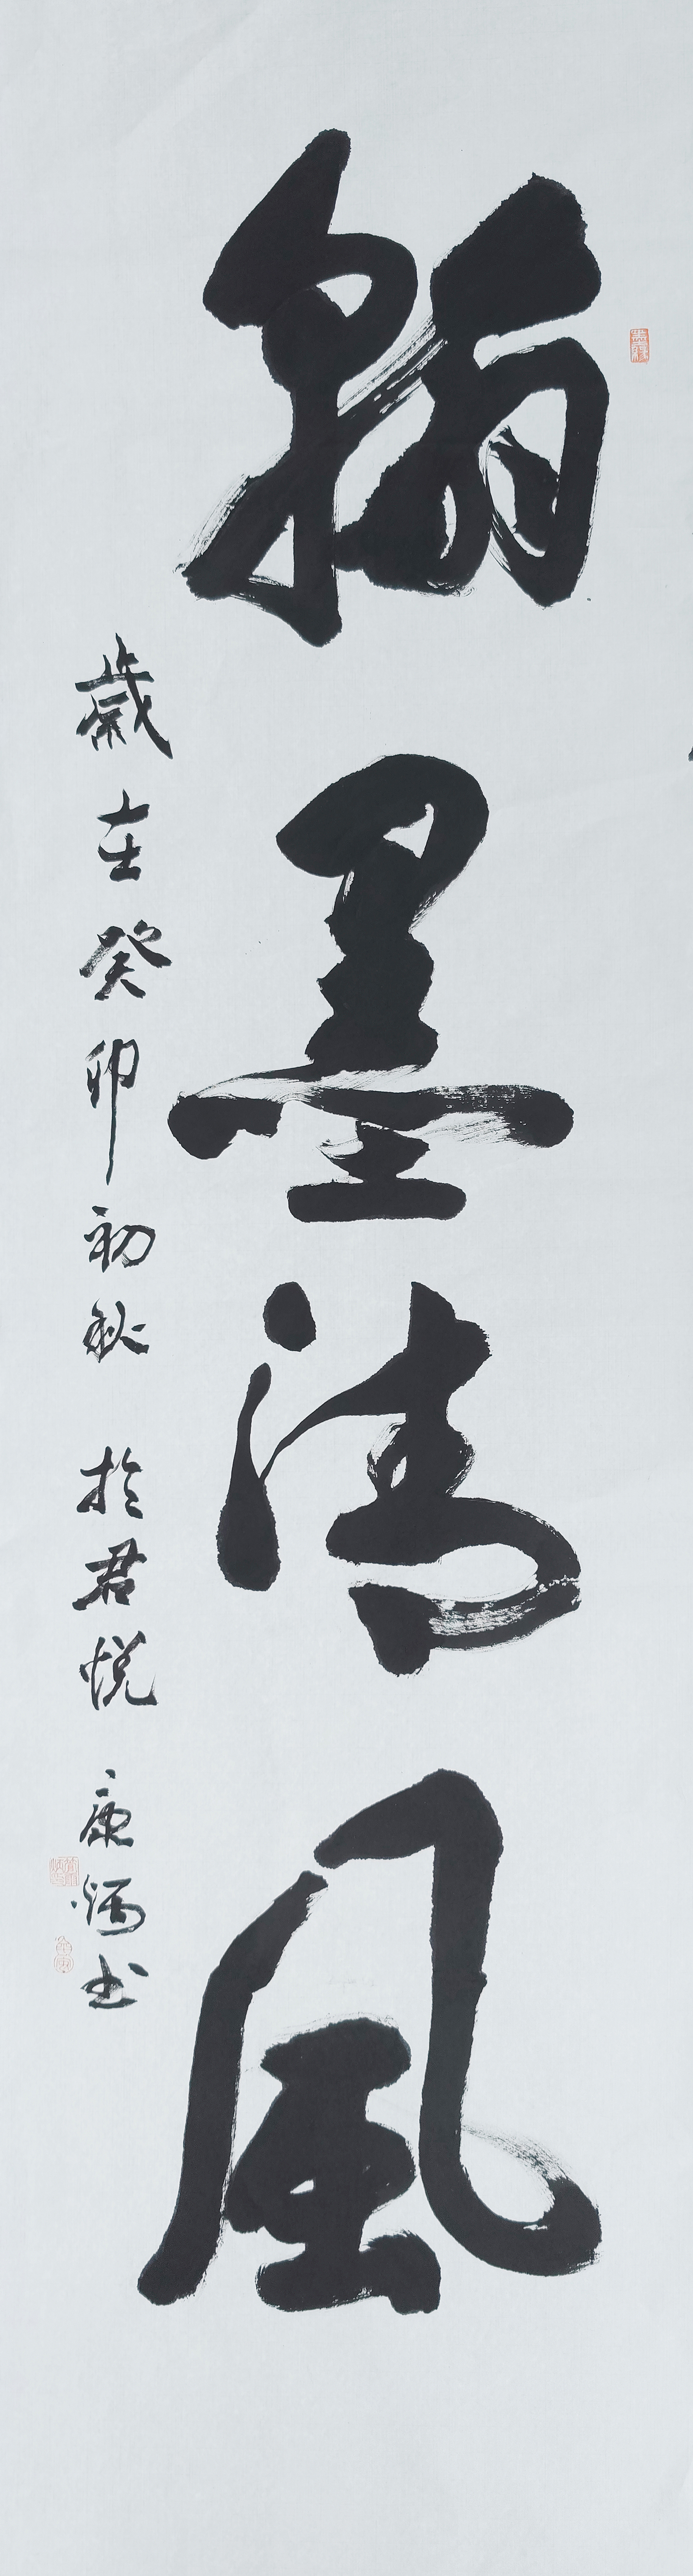 翰墨清風
歲在癸卯初秋 於君悅 康炳書